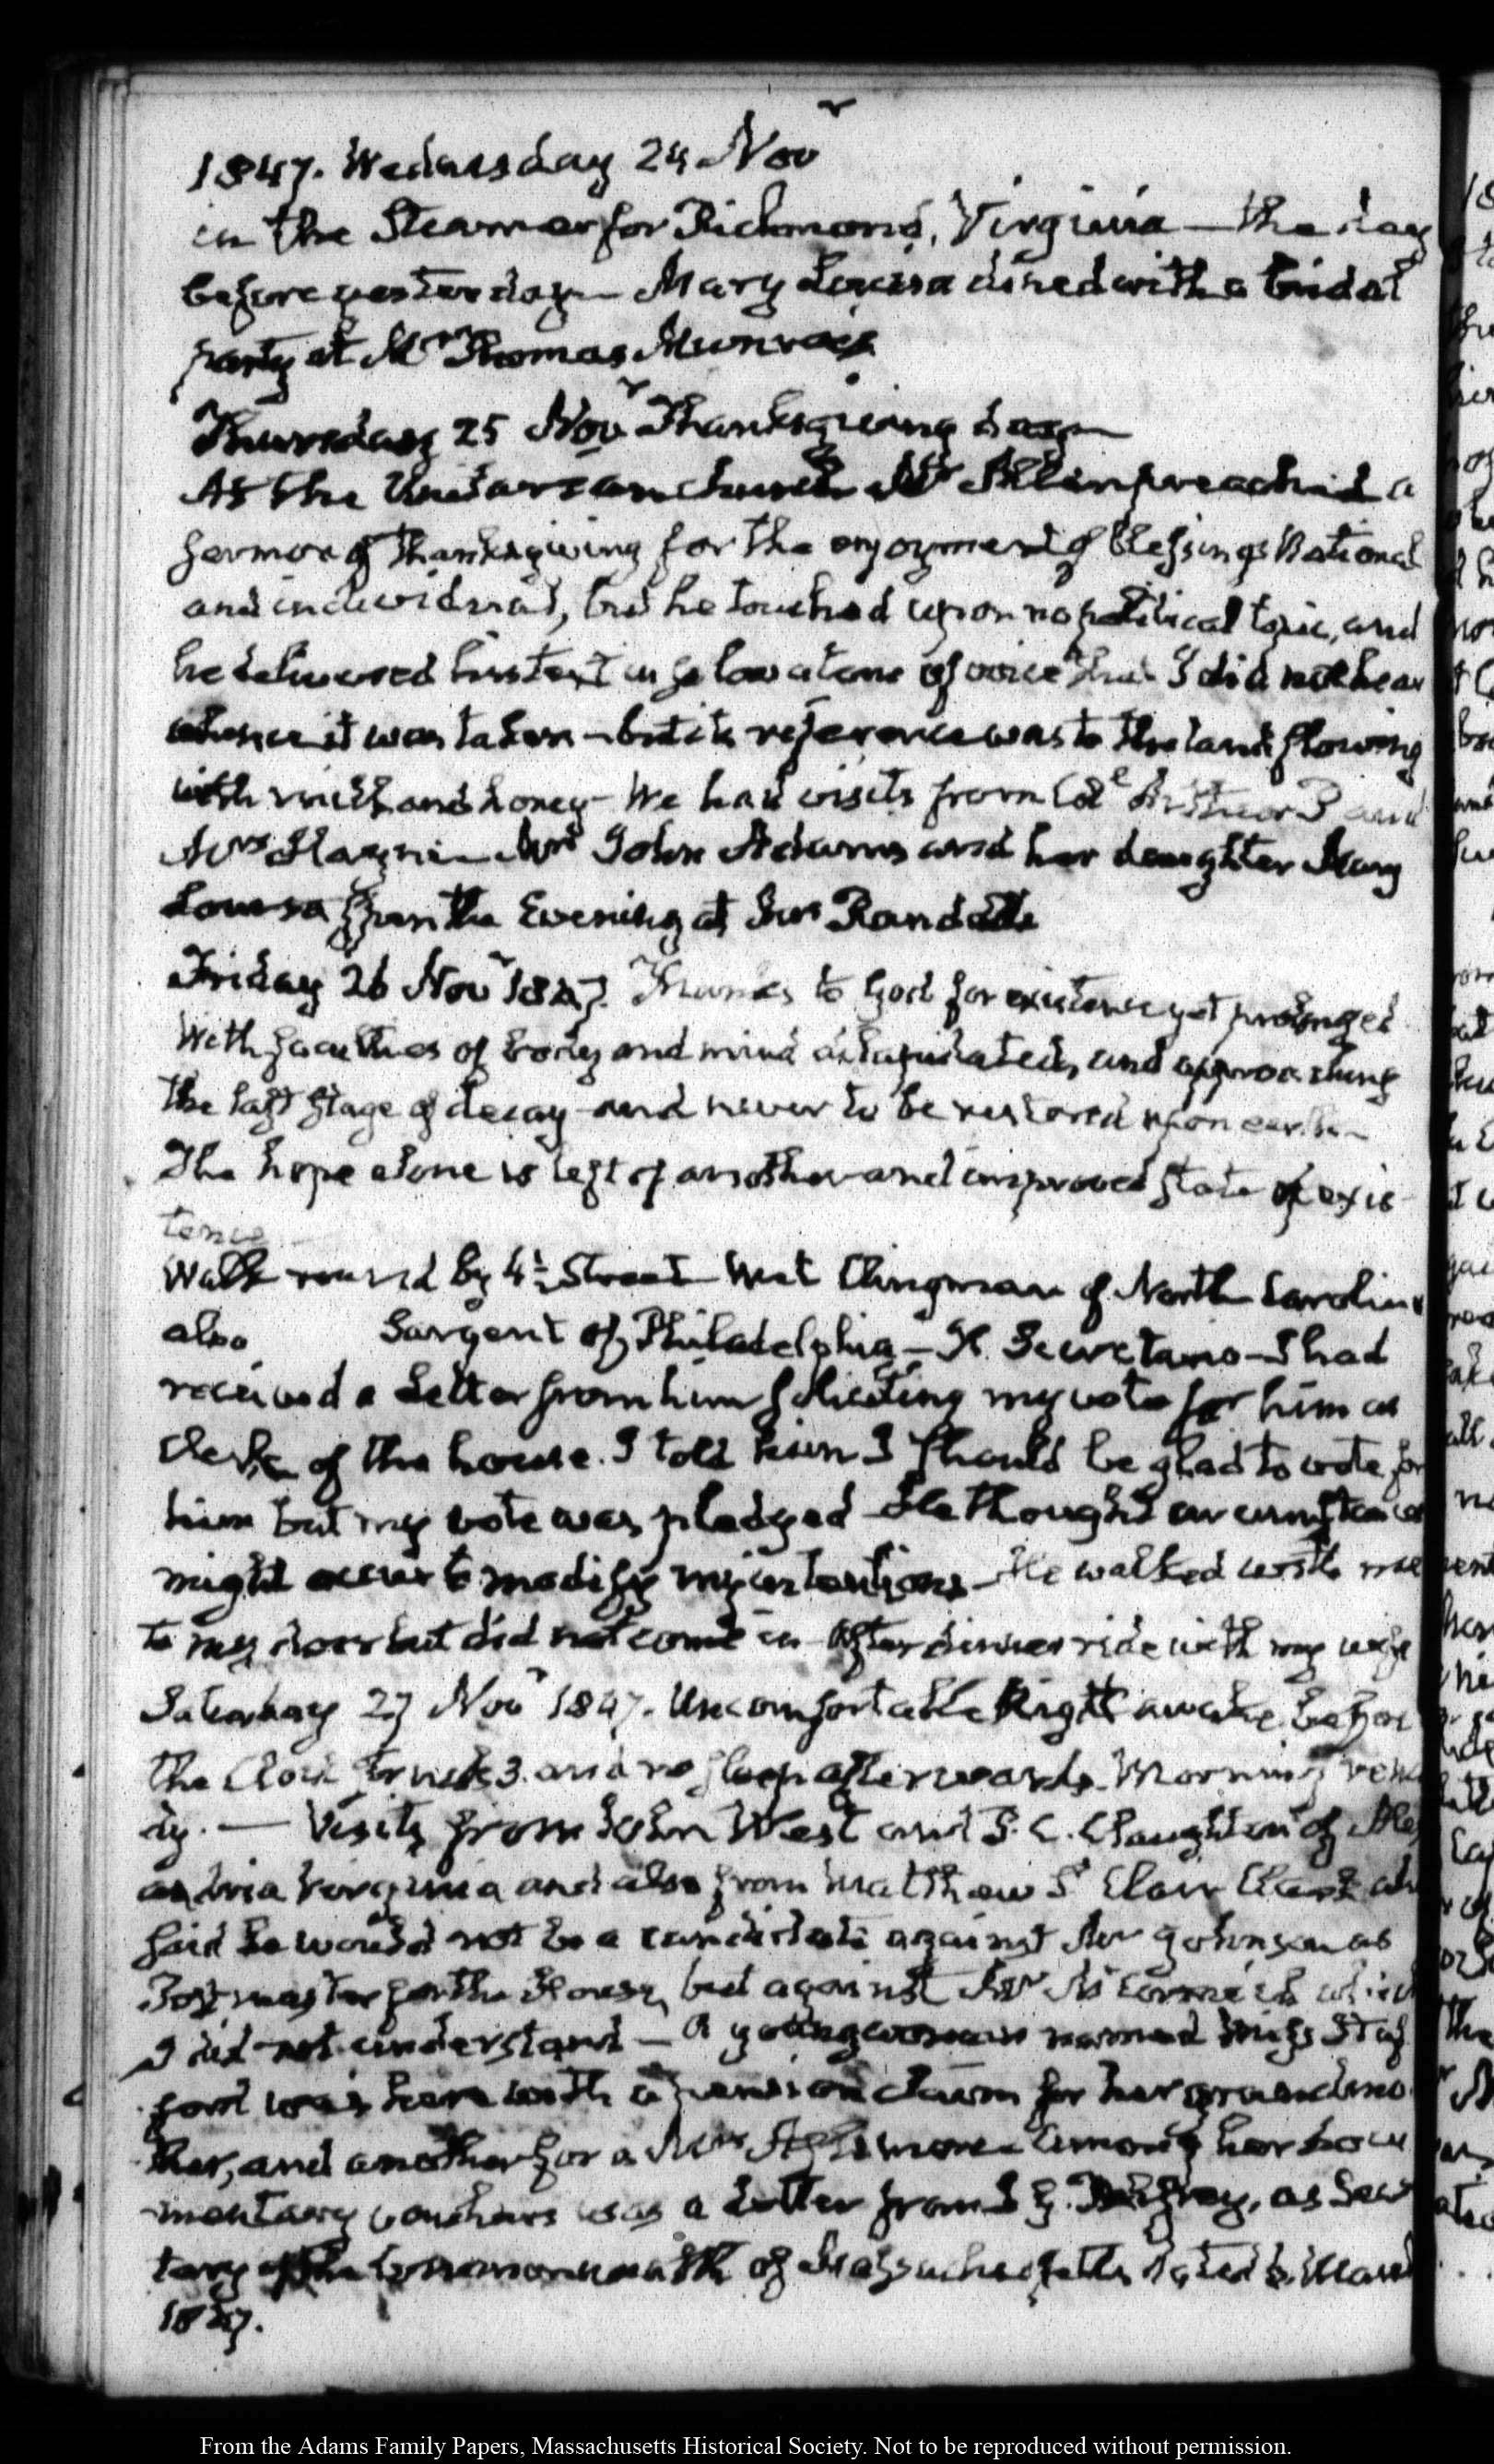 1847. Wednesday 24 Novr
in the Steamer for Richmond, Virginia — the day
before yesterday — Mary Louisa dined with a bridal
party at Mr Thomas Munroe's
Thursday 25 Novr Thanksgiving day —
At the Unitarian Church Mr Allen preached a
sermon of thanksgiving for the enjoyment of blessings National
and individual, but he touched upon no political topic, and
he delivered his text in so low a tone of voice that I did not hear
whence it was taken — but its reference was to the land flowing
with milk and honey — We had visits from Col Arthur P and
Mrs Hayne — Mrs John Adams and her daughter Mary
Louisa spen the Evening at Mrs Randalls
Friday 26 Novr 1847. Thanks to God for existence yet prolonged
With faculties of body and mind dilapidated, and approaching
the last stage of decay — and never to be restored upon earth —
The hope alone is left of another and improved state of exis-
tence
Walk round by 4½ Street — Met Clingman of North Carolina
also Sargent of Philadelphia — I had
received a Letter from him soliciting my vote for him as
Clerk of the house. I told him I should be glad to vote for
him but my vote was pledged — He thought circumstances
might occur to modify my intentions — He walked with me
to my door but did not come in — After dinner ride with my wife
Saturday 27 Novr 1847. Uncomfortable Night awake before
the Clock struck 3. and no sleep afterwards. Morning
— Visits from John West and of Alex
andria Virginia and also from Matthew St Clair Clarke who
said he would not be a candidate against Mr Johnson as
Postmaster for the House, but against Mr McCormick which
I did not understand — A young woman named Miss Staf
ford was here with a pension claim for her grandmo
ther, and another for a Mrs among her docu
mentary vouchers was a Letter from J G. Palfrey, as Secre
tary of the Commonwealth of Massachusetts dated
1847.
From the Adams Family Papers, Massachusetts Historical Society. Not to be reproduced without permission.